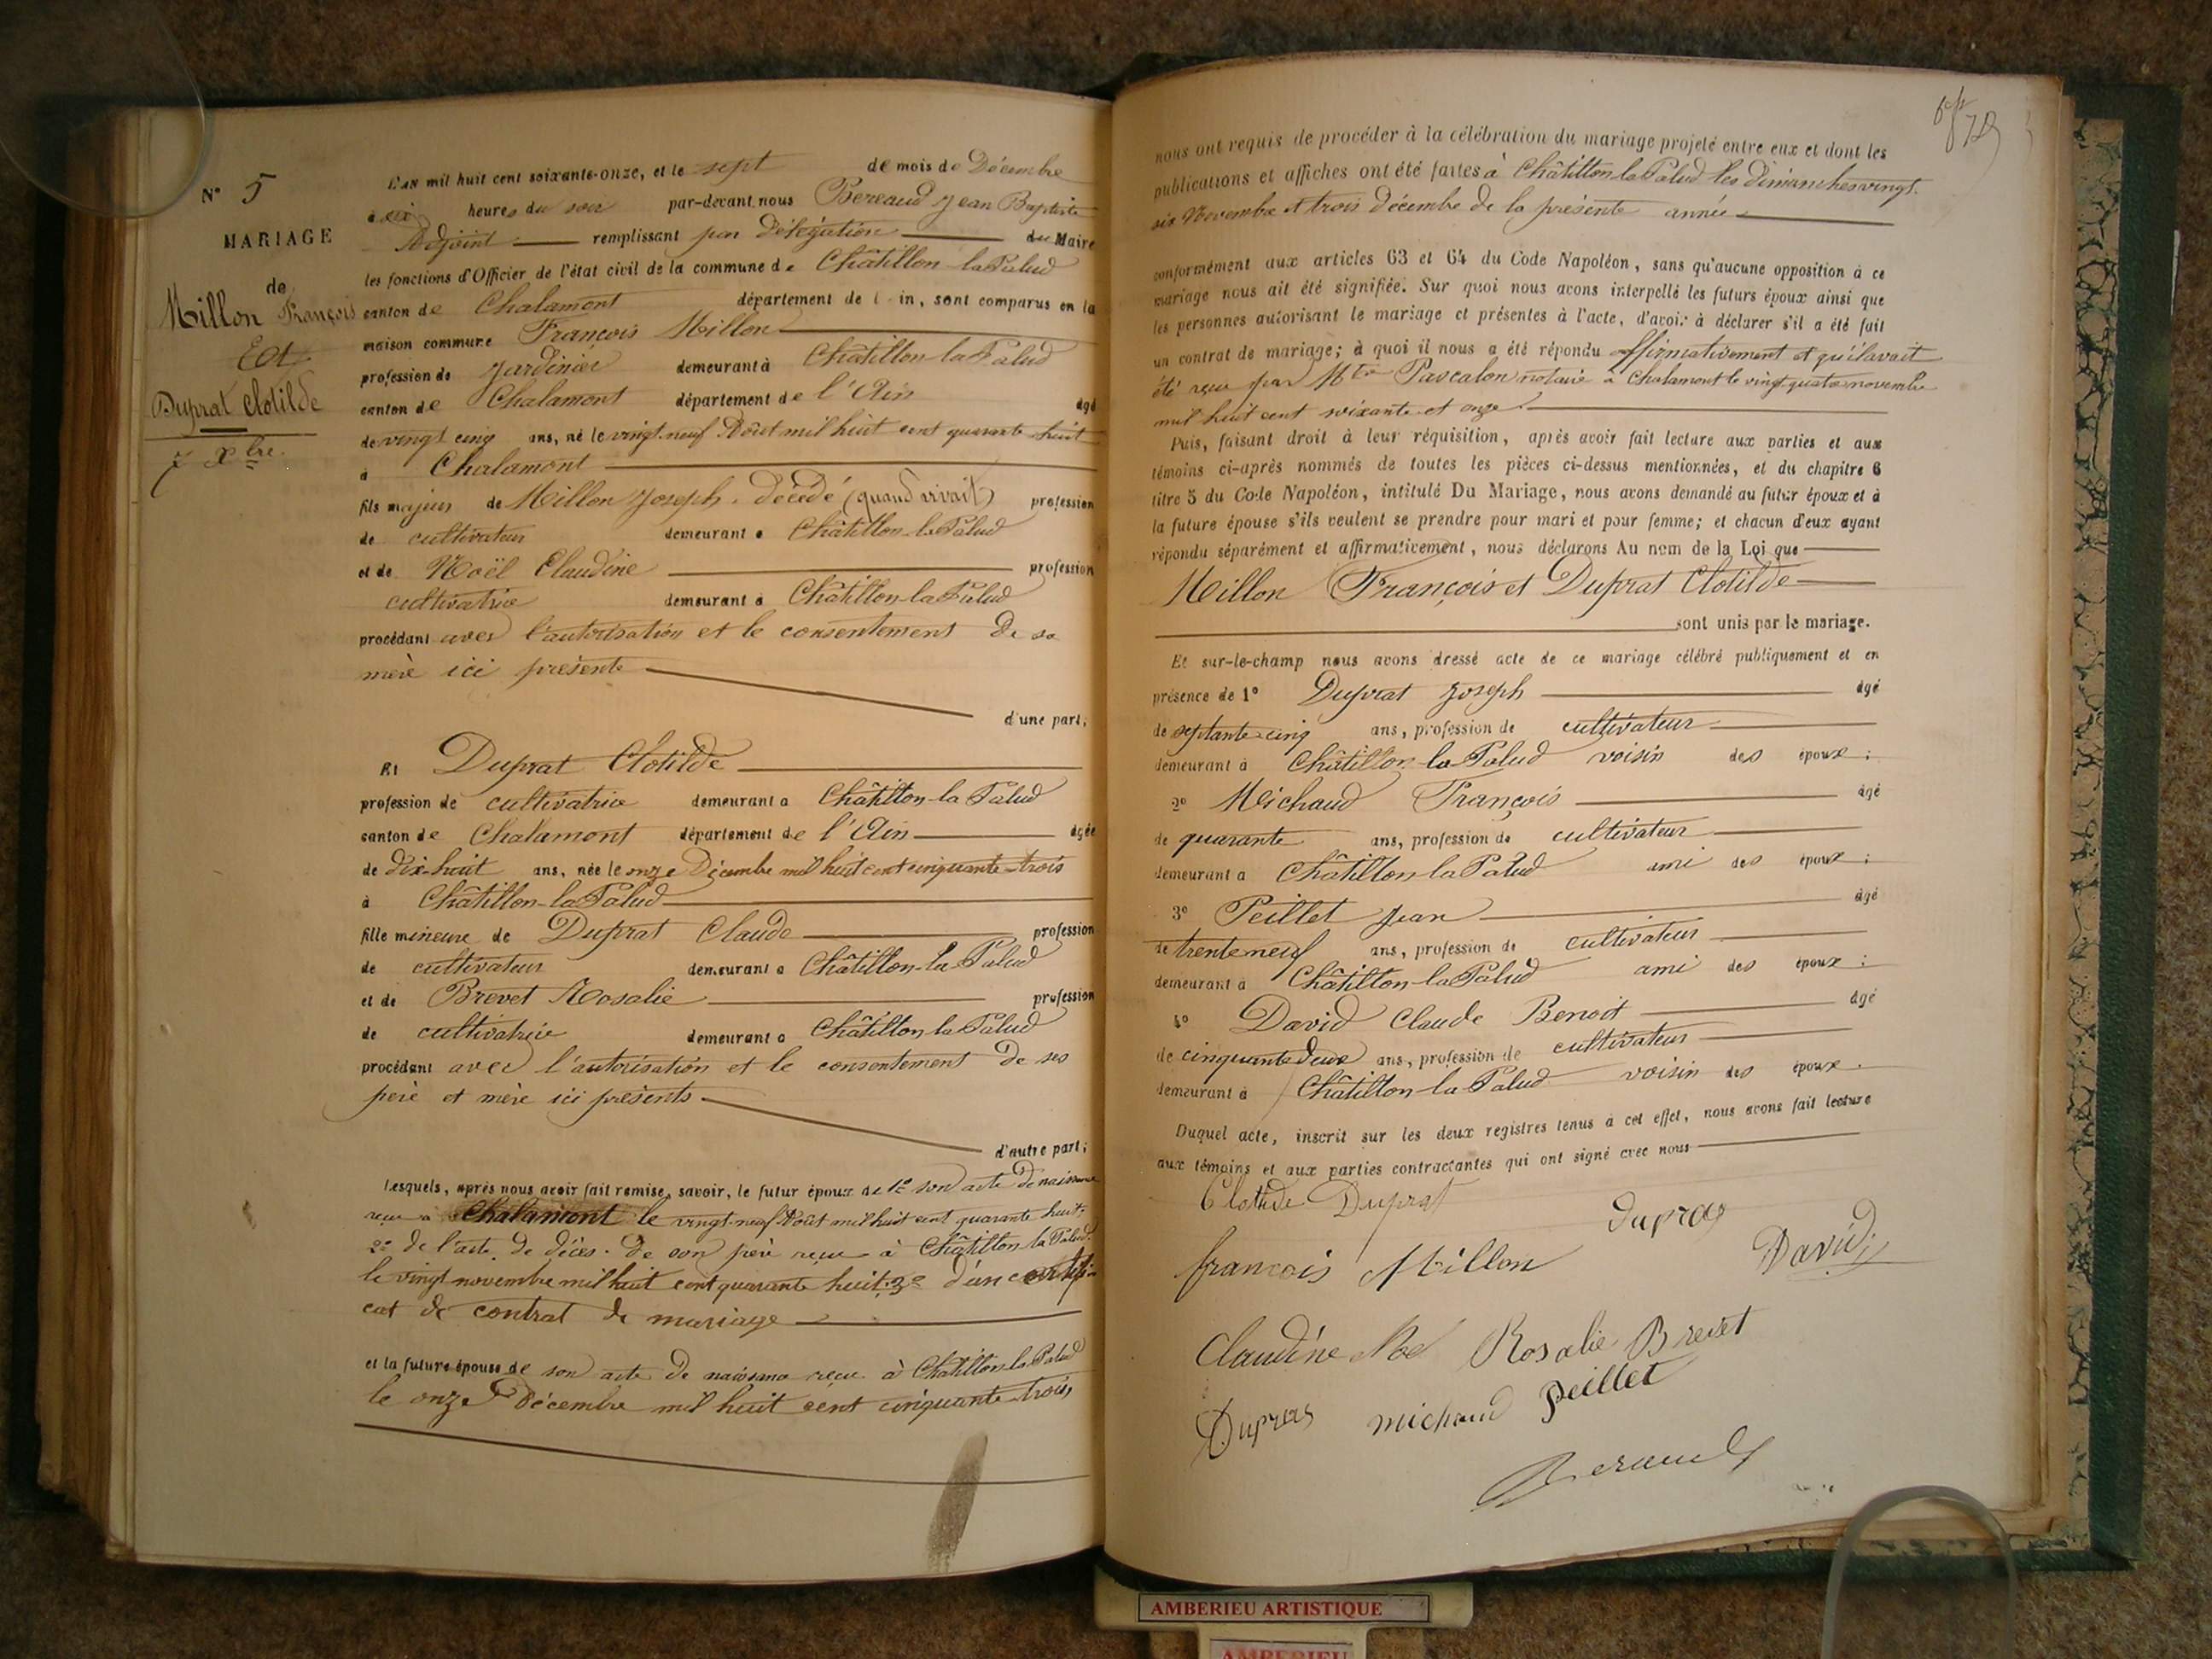 N° 5
MARIAGE
de
Millon François
Et
Duprat Clotilde
7 Xbre.
L'AN mil huit cent soixante-onze, et le sept de mois de Décembre
à six heures du soir par-devant nous Béreaud Jean Baptiste
Adjoint remplissant par Délégation du Maire
les fonctions d'Officier de l'état civil de la commune de Châtillon-la Palud
canton de Chalamont département de l'Ain, sont comparus en la
maison commune François Millon
profession de Jardinier demeurant à Châtillon-la Palud
canton de Chalamont département de l'Ain âgé
de vingt cinq ans, né le vingt-neuf Août mil huit cent quarante-huit
à Chalamont
fils majeur de Millon Joseph. décédé (quand vivait) profession
de cultivateur demeurant à Châtillon-la Palud
et de Noël Claudine profession
cultivatrice demeurant à Châtillon-la Palud
procédant avec l'autorisation et le consentement de sa
mère ici présente
d'une part;
Et Duprat Clotilde
profession de cultivatrice demeurant à Châtillon-la Palud
canton de Chalamont département de l'Ain âgée
de dix-huit ans, née le onze Décembre mil huit cent cinquante-trois
à Châtillon-la Palud
fille mineure de Duprat Claude profession
de cultivateur demeurant à Châtillon-la Palud
et de Brevet Rosalie profession
de cultivatrice demeurant à Châtillon-la Palud
procédant avec l'autorisation et le consentement de ses
père et mère ici présents
d'autre part;
Lesquels, après nous avoir fait remise, savoir, le futur époux de 1° son acte de naissance
reçu à Chalamont le vingt-neuf Août mil huit cent quarante huit;
2° de l'acte de décès de son père reçu à Châtillon la Palud
le vingt novembre mil huit cent quarante huit; 3° d'un certifi-
cat de contrat de mariage
et la future épouse de son acte de naissance reçu à Châtillon-la Palud
le onze Décembre mil huit cent cinquante-trois
nous ont requis de procéder à la célébration du mariage projeté entre eux et dont les
publications et affiches ont été faites à Châtillon-la Palud les dimanches vingt-
six Novembre et trois décembre de la présente année
conformément aux articles 63 et 64 du Code Napoléon, sans qu'aucune opposition à ce
mariage nous ait été signifiée. Sur quoi nous avons interpellé les futurs époux ainsi que
les personnes autorisant le mariage et présentes à l'acte, d'avoir à déclarer s'il a été fait
un contrat de mariage; à quoi il nous a été répondu affirmativement et qu'il avait
été reçu par Mtre Pascalon notaire à Chalamont le vingt quatre novembre
mil huit cent soixante et onze.
Puis, faisant droit à leur réquisition, après avoir fait lecture aux parties et aux
témoins ci-après nommés de toutes les pièces ci-dessus mentionnées, et du chapitre 6
titre 5 du Code Napoléon, intitulé Du Mariage, nous avons demandé au futur époux et à
la future épouse s'ils veulent se prendre pour mari et pour femme; et chacun d'eux ayant
répondu séparément et affirmativement, nous déclarons Au nom de la Loi que
Millon François et Duprat Clotilde
sont unis par le mariage.
Et sur-le-champ nous avons dressé acte de ce mariage célébré publiquement et en
présence de 1° Duprat Joseph âgé
de septante-cinq ans, profession de cultivateur
demeurant à Châtillon-la Palud voisin des époux;
2° Michaud François âgé
de quarante ans, profession de cultivateur
demeurant à Châtillon-la Palud ami des époux;
3° Peillet Jean âgé
de trente neuf ans, profession de cultivateur
demeurant à Châtillon-la Palud ami des époux;
4° David Claude Benoit âgé
de cinquante deux ans, profession de cultivateur
demeurant à Châtillon-la Palud voisin des époux.
Duquel acte, inscrit sur les deux registres tenus à cet effet, nous avons fait lecture
aux témoins et aux parties contractantes qui ont signé avec nous
Clotilde Duprat
Dupras
françois Millon
David
Claudine Noel Rosalie Brevet
Dupras michaud Peillet
Beraud
AMBERIEU ARTISTIQUE
AMBERIEU